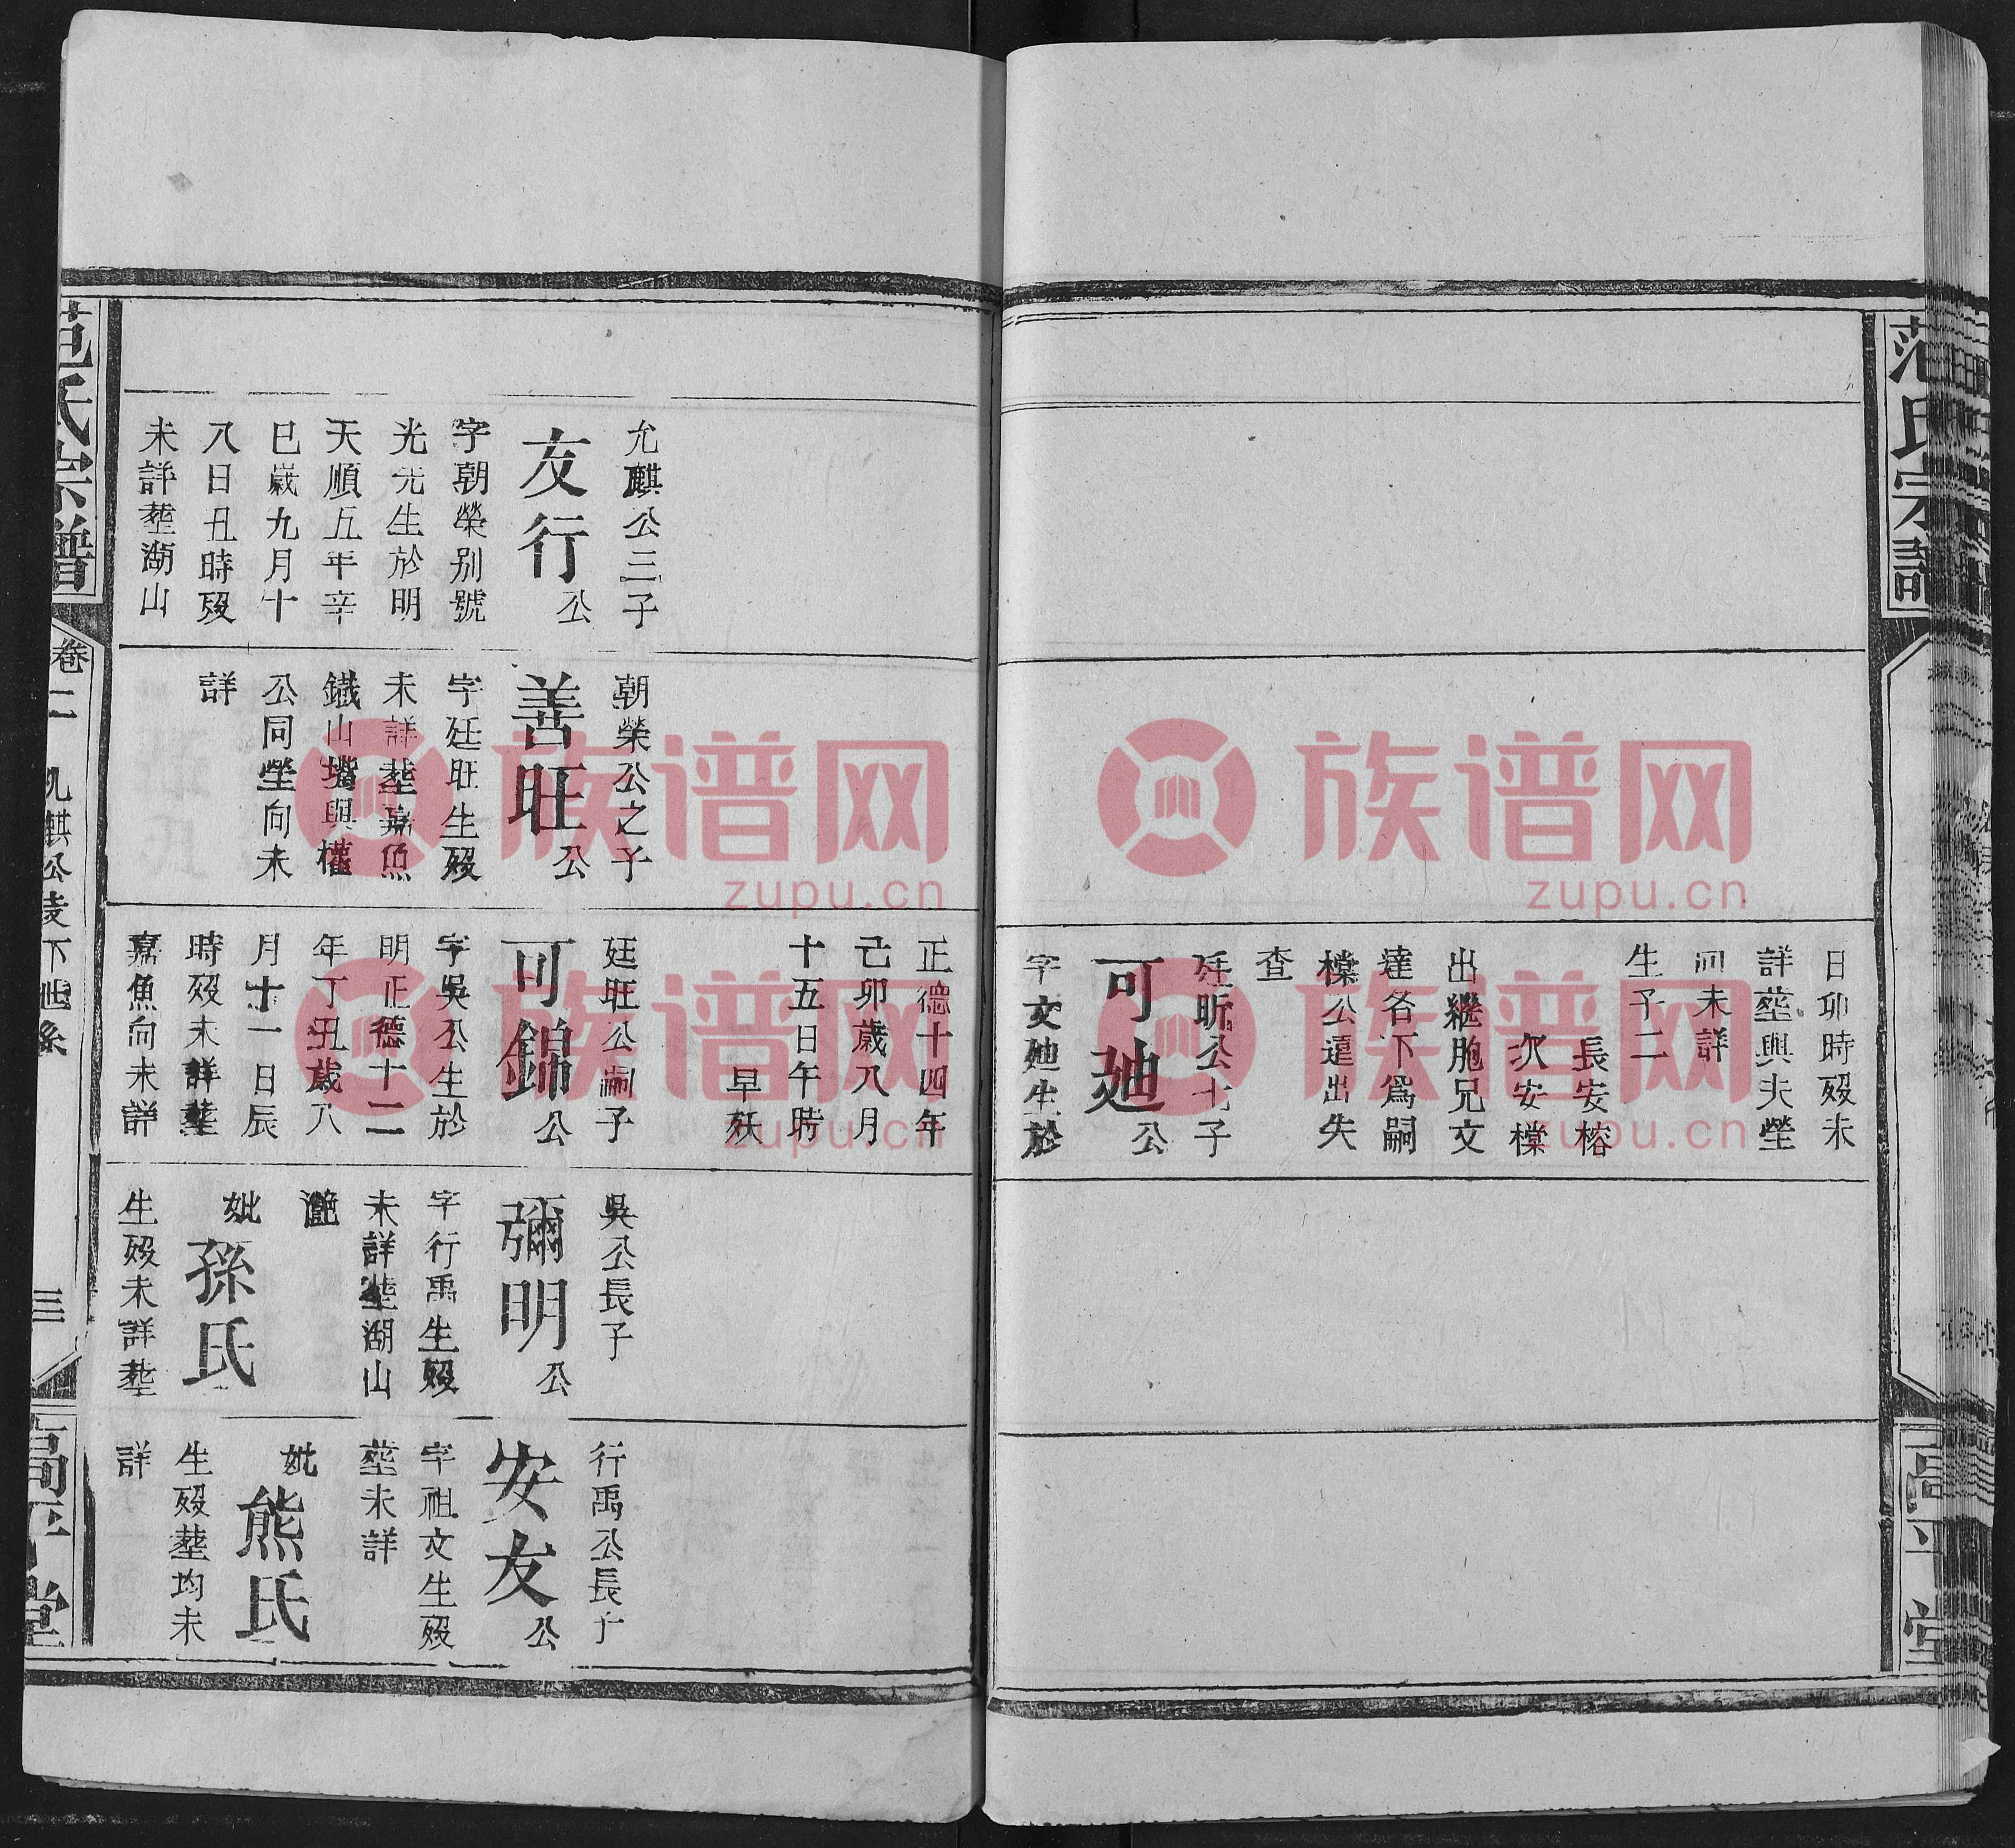 范氏宗譜
日卯時殁未
詳塟與夫塋
向未詳
生子二
長安榕
次安欓
出繼胞兄文
達名下爲嗣
欓公逼出失
查
廷昕公七子
可廸公
字文廸生於
正德十四年
己卯歲八月
十五日午時
早殀
高平堂
允麒公三子
友行公
字朝榮别號
光先生於明
天順五年辛
巳歲九月十
八日丑時殁
未詳塟湖山
朝榮公之子
善旺公
字廷旺生殁
未詳塟嘉魚
鐵山墈與權
公同塋向未
詳
廷旺公嗣子
可錦公
字吳公生於
明正德十二
年丁丑歲八
月十一日辰
時殁未詳塟
嘉魚向未詳
吳公長子
彌明公
字行禹生殁
未詳塟湖山
妣孫氏
生殁未詳塟
行禹公長子
安友公
字祖文生殁
塟未詳
妣熊氏
生殁塟均未
詳
范氏宗譜
卷二
允麒公支下世系
三
高平堂
族谱网
zupu.cn
族谱网
zupu.cn
族谱网
zupu.cn
族谱网
zupu.cn